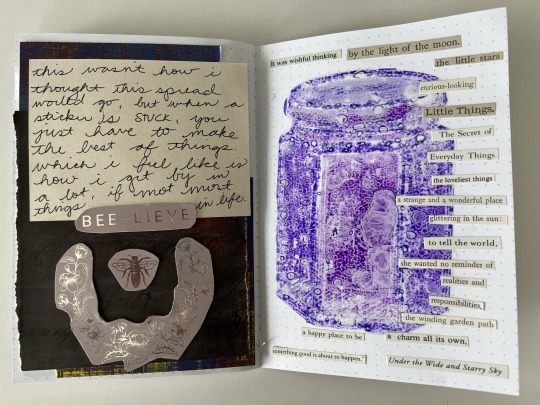 this wasn't how i
thought this spread
would go, but when a
sticker is STUCK, you
just have to make
the best of things.
which i feel like is
how i git by in
a lot, if not most
things in life.
BEE-LIEVE
It was wishful thinking
by the light of the moon.
the little stars
curious-looking
Little Things.
The Secret of
Everyday Things
the loveliest things
a strange and a wonderful place
glittering in the sun:
to tell the world.
she wanted no reminder of
realities and
responsibilities,
the winding garden path
a happy place to be
a charm all its own.
something good is about to happen."
Under the Wide and Starry Sky